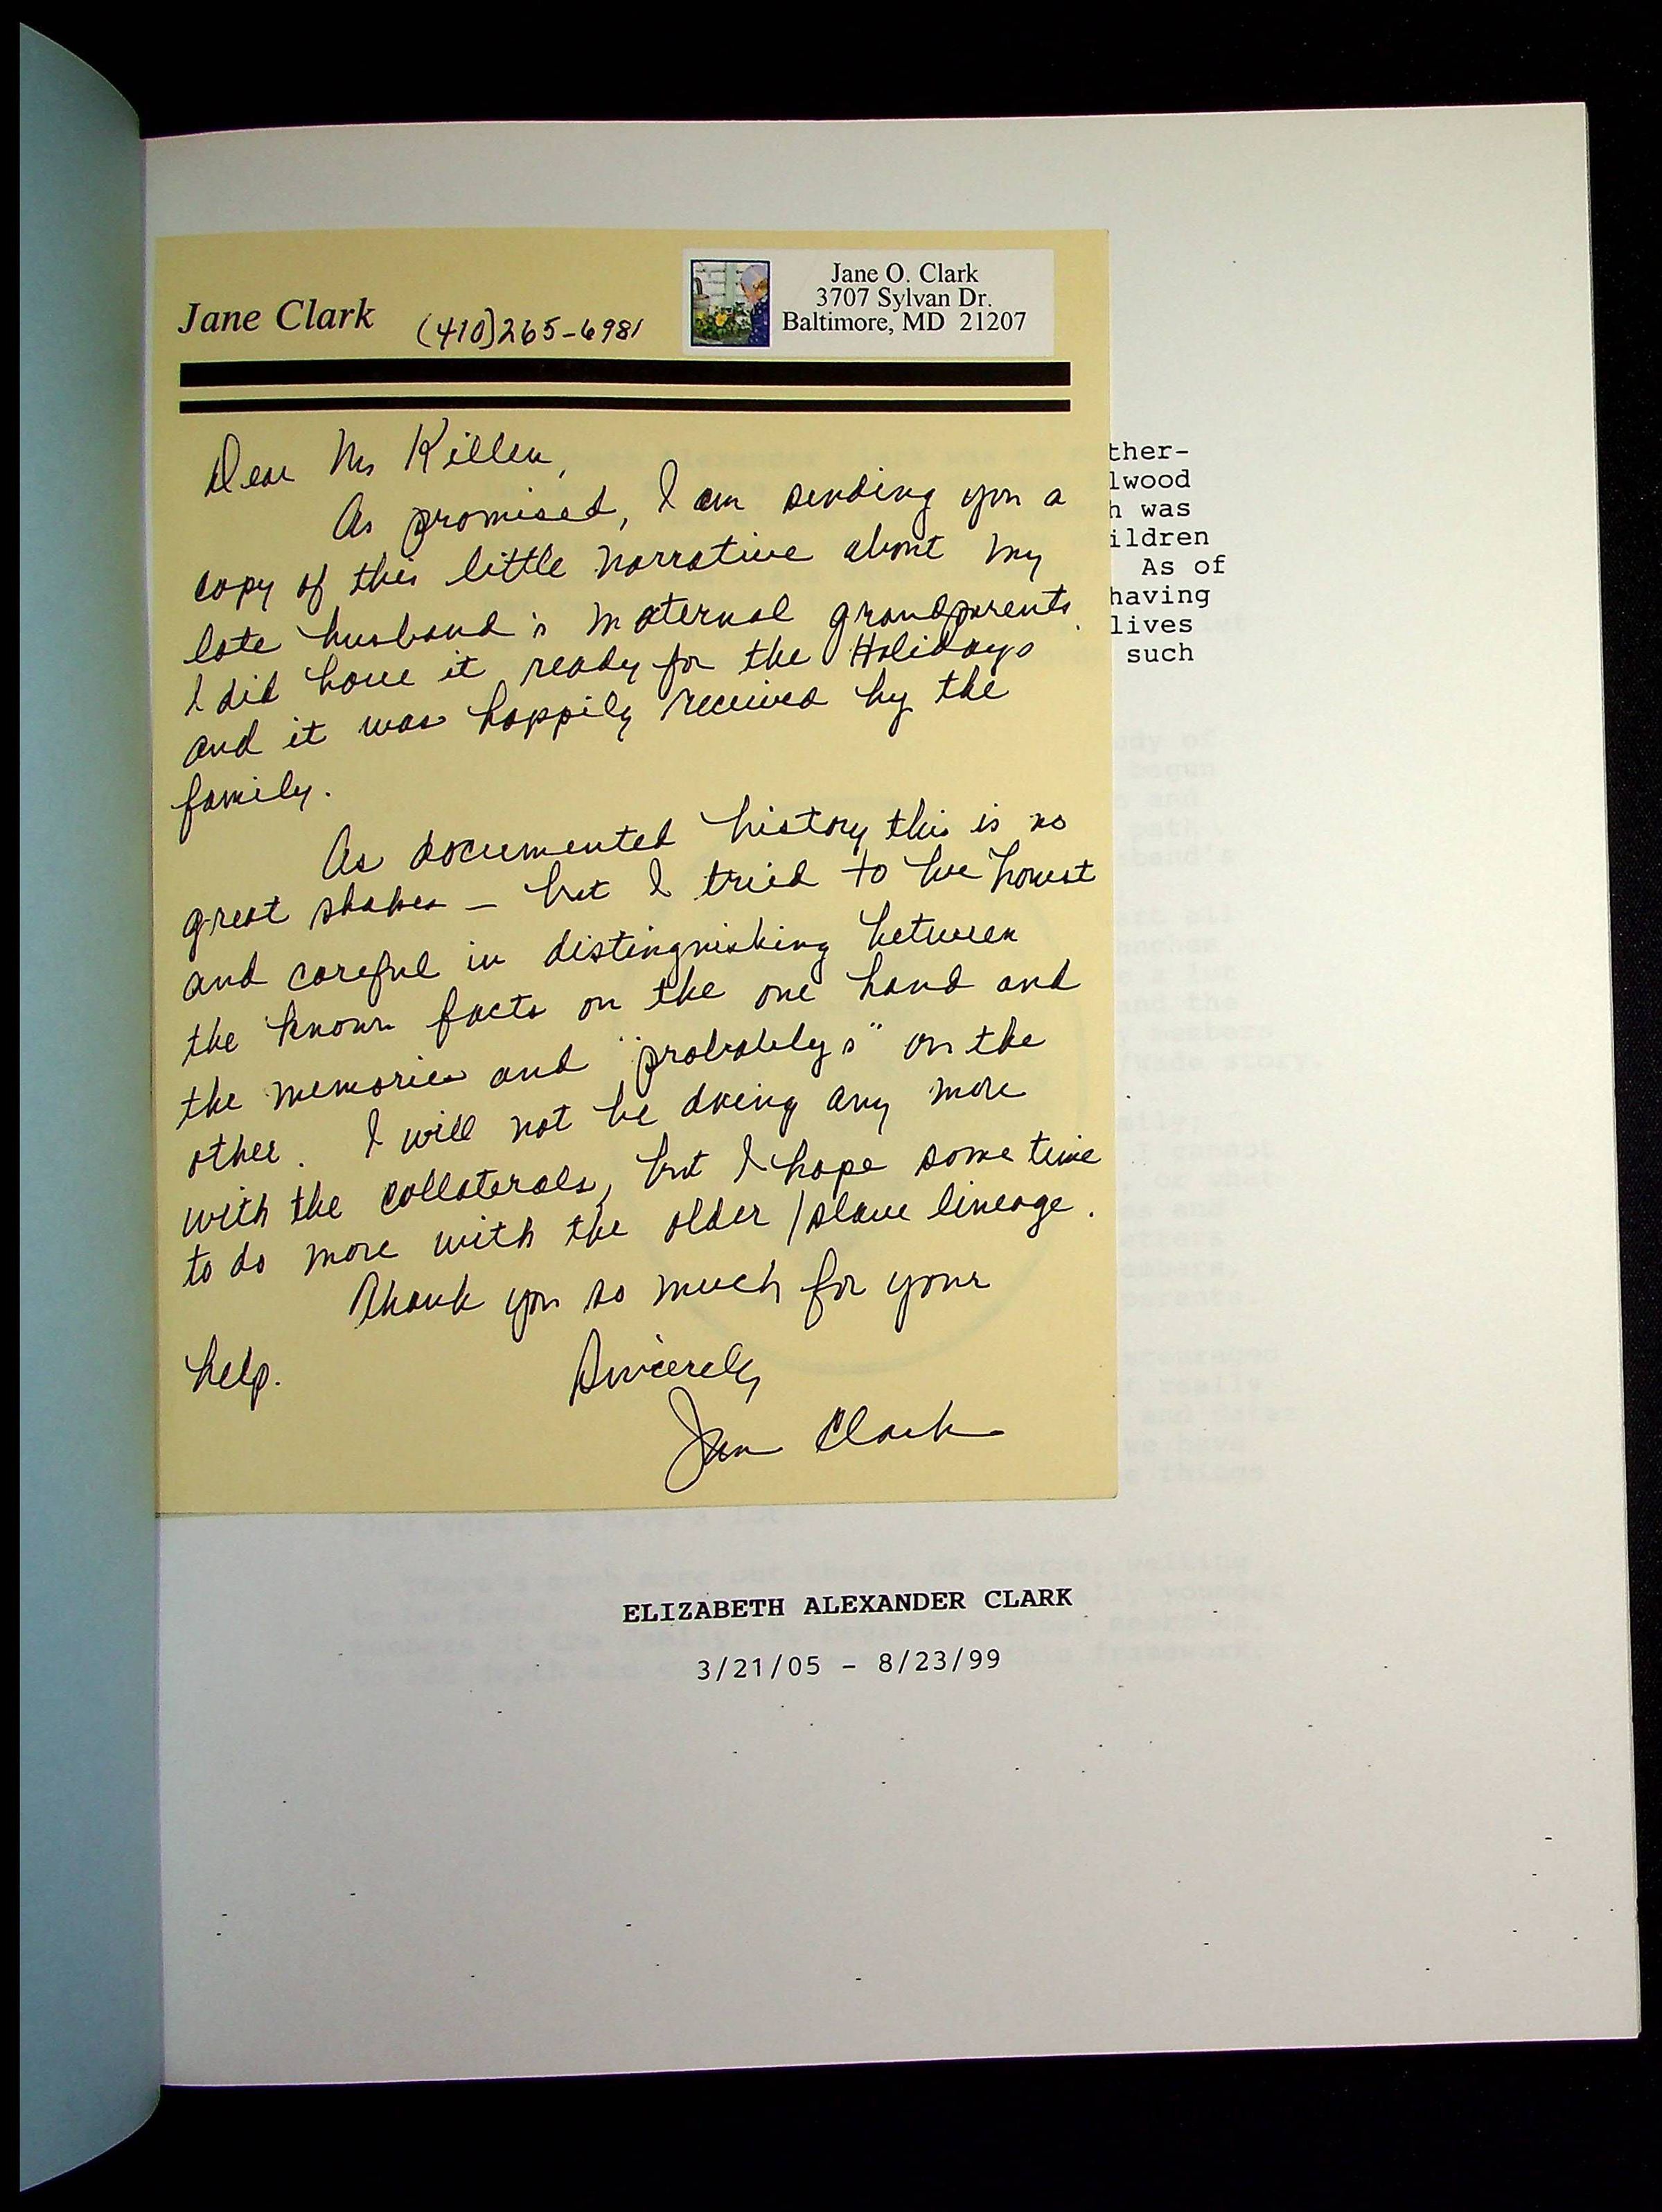 Jane Clark (410)265-6981
Jane O. Clark
3707 Sylvan Dr.
Baltimore, MD 21207
Dear Ms Killen,
As promised, I am sending you a
copy of this little narrative about my
late husband's maternal grandparents.
I did have it ready for the Holidays
and it was happily received by the
family.
As documented history this is no
great shakes – but I tried to be honest
and careful in distinguishing between
the known facts on the one hand and
the memories and "probablys" on the
other. I will not be doing any more
with the collaterals, but I hope some time
to do more with the older/slave lineage.
Thank you so much for your
help.
Sincerely,
Jane Clark
ther-
lwood
h was
ildren
As of
having
lives
such
ELIZABETH ALEXANDER CLARK
3/21/05 – 8/23/99